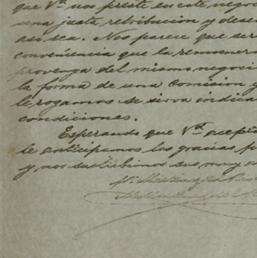 que Vd. nos preste en este nego
una justa retribucion y desea
asi sea. Nos parece que ser
conveniencia que la remunera
provenga del mismo negoci
la forma de una Comision y
le rogamos se sirva indica
condiciones.
Esperando que Vd. acept
le anticipamos las gracias, p
y nos suscribimos sus muy